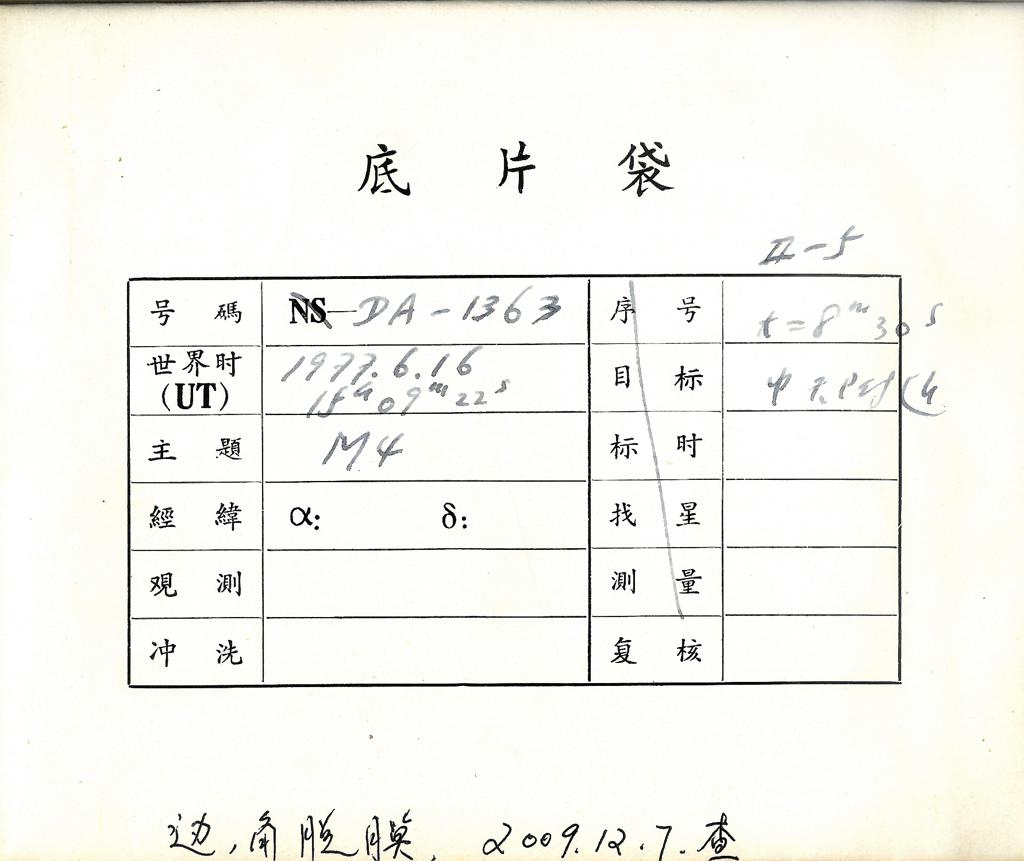 底 片 袋
II-5
号 碼 NS—DA-1363 序 号 t=8ᵐ30ˢ
世界时 (UT) 1977.6.16 15ʰ09ᵐ22ˢ 目 标
主 題 M4 标 时
經 緯 α: δ: 找 星
观 测 测 量
冲 洗 复 核
边,角脱膜, 2009.12.7.查